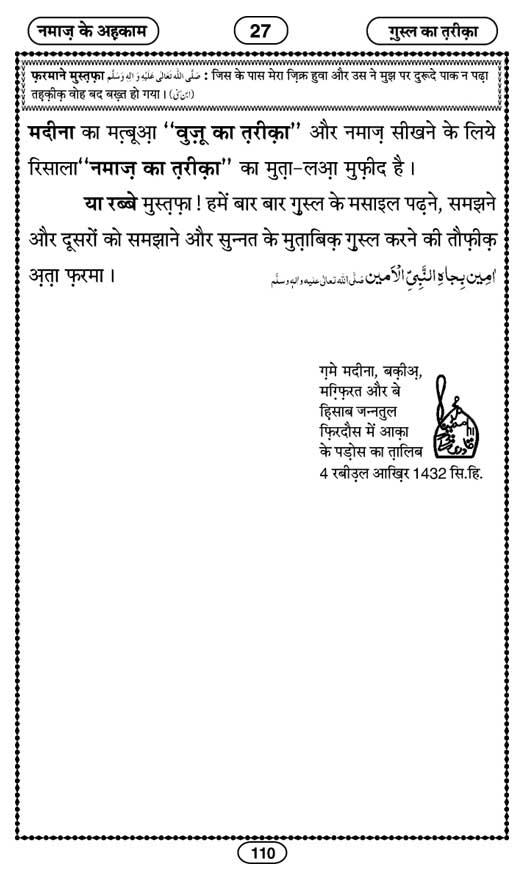 नमाज़ के अहकाम
27
ग़ुस्ल का त़रीक़ा
फ़रमाने मुस्त़फ़ा صَلَّى اللهُ تَعَالٰى عَلَيْهِ وَاٰلِهٖ وَسَلَّم : जिस के पास मेरा ज़िक्र हुवा और उस ने मुझ पर दुरूदे पाक न पढ़ा
तह़क़ीक़ वोह बद बख़्त हो गया। (ابن سنی)
मदीना का मत़्बूआ़ ‘‘वुज़ू का त़रीक़ा’’ और नमाज़ सीखने के लिये
रिसाला ‘‘नमाज़ का त़रीक़ा’’ का मुत़ा-लआ़ मुफ़ीद है।
या रब्बे मुस्त़फ़ा ! हमें बार बार ग़ुस्ल के मसाइल पढ़ने, समझने
और दूसरों को समझाने और सुन्नत के मुत़ाबिक़ ग़ुस्ल करने की तौफ़ीक़
अ़त़ा फ़रमा। اٰمِين بِجاهِ النَّبِيِّ الْاَمين صلَّی اللہ تعالیٰ علیہ واٰلہٖ وسلَّم
ग़मे मदीना, बक़ीअ़,
मग़्फ़िरत और बे
ह़िसाब जन्नतुल
फ़िरदौस में आक़ा
के पड़ोस का त़ालिब
4 रबीउ़ल आख़िर 1432 सि.हि.
110